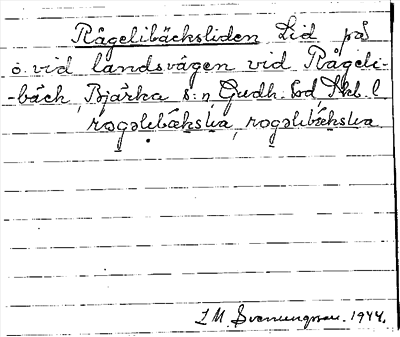 Rågelibäcksliden Lid på
ö. vid landsvägen vid Rågeli-
-bäck, Bjärka s:n Gudh. Hd, Skbl. l
rogəlebækslıa, rogəlıbækslıa
L M Svenungsson. 1944.